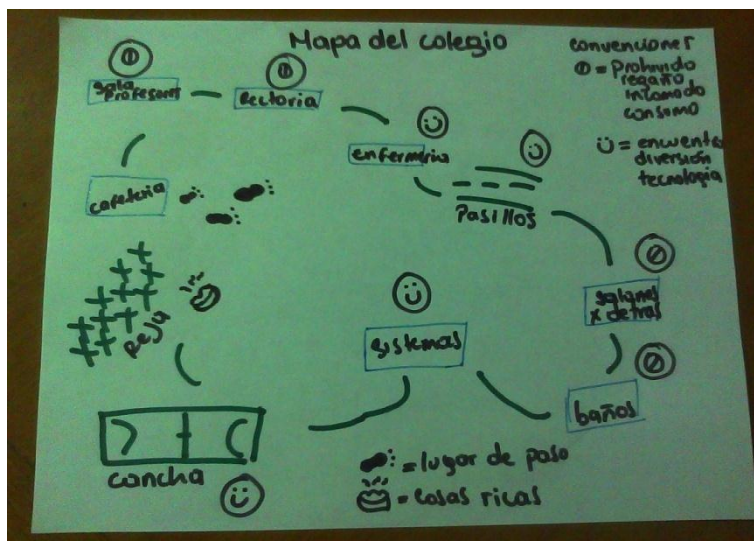 Mapa del colegio
convenciones
= Prohivido
regaño
incomodo
consumo
= encuentro
diversión
tecnologia
sala
Profesores
Rectoria
enfermeria
Pasillos
cafeteria
Reja
salones
x detras
sistemas
baños
cancha
= lugar de paso
= cosas ricas